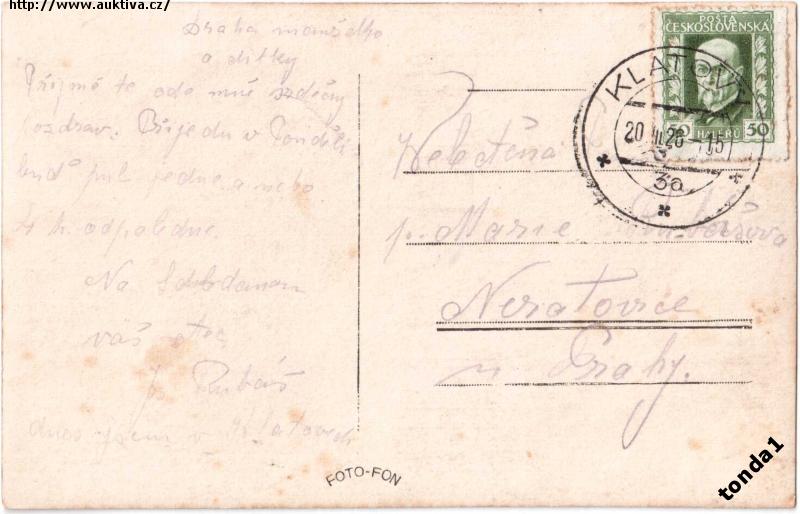 http://www.auktiva.cz/
Drahá manželko
a dítky
Přijmě te ode mně srdečný
pozdrav. Přijedu v Pondělí
buď půl jedne a nebo
4 h. odpoledne.
Na Shledanou
váš otec
Jos Rubáš
dnes jsem v Klatovech
FOTO-FON
POŠTA
ČESKOSLOVENSKÁ
50
HALÉŘŮ
KLATOVY
20 III 26
3a
Veletěná
p. Marie
Neratovice
u Prahy.
tonda1